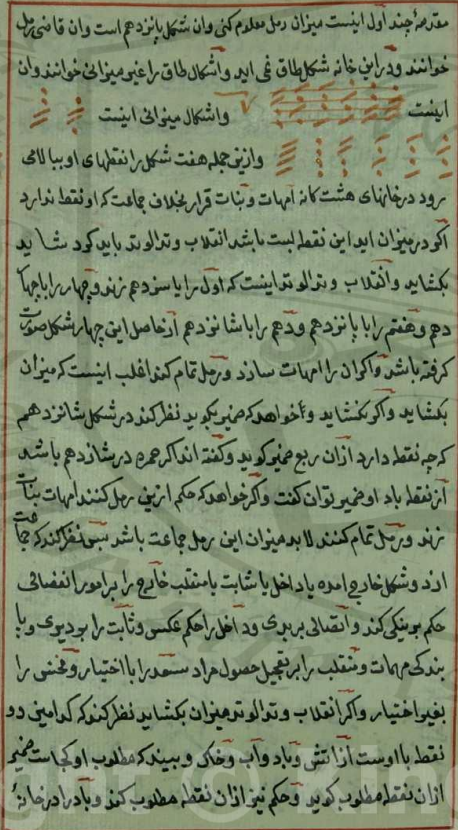 مقدمهٔ چند اول اینست میزان رمل معلوم کنی وان شکل پانزدهم است وان قاضی رمل
خوانند ودراین خانه شکل طاق نمی اید واشکال طاق راغیر میزانی خوانند وان
اینست واشکال میزانی اینست
وازین جمله هفت شکل را نقطهای او ببالا می
رود درخانهای هشت کانه امهات وبنات قرار بخلاف جماعت که او نقط ندارد
اکر درمیزان اید این نقطه لبست باشد انقلاب وتدالوتد باید کرد شاید
بکشاید وانقلاب وتدالوتد اینست که اول را با سیزدهم زند وچهار را با چها
دهم وهفتم را با پانزدهم ودهم را با شانزدهم ازحاصل این چهار شکل صورت
کرفته باشد واکر ان را امهات سازد ورمل تمام کند اغلب اینست که میزان
بکشاید واکر نکشاید وخواهد که ضمیر بکوید نظر کند درشکل شانزدهم
که چه نقطه دارد ازان ربع ضمیر کوید وکفته اند اکر حمره در شانزدهم باشد
ازنقطه باد او ضمیر توان کفت واکر خواهد که حکم ازین رمل کنند امهات بنات
زند ورمل تمام کنند لابد میزان این رمل جماعت باشد پس نظر کند که جماعت
از دو شکل خارج امده یا داخل یا ثابت یا منقلب خارج را بر امور انفصالی
حکم بر نیکی کند واتصالی بر بدی وداخل را حکم عکس وثابت را بر دیری وپا
بندکی مهمات ومنقلب را بر تعجیل حصول مراد سعد را با اختیار ونحس را
بغیر اختیار واکر انقلاب وتدالوتد میزان بکشاید نظر کند که کدامین دو
نقطه با اوست از اتش وباد واب وخاک وببیند که مطلوب او کجاست ضمیر
ازان نقطه مطلوب کوید وحکم نیز ازان نقطه مطلوب کند وباد را درخانهٔ